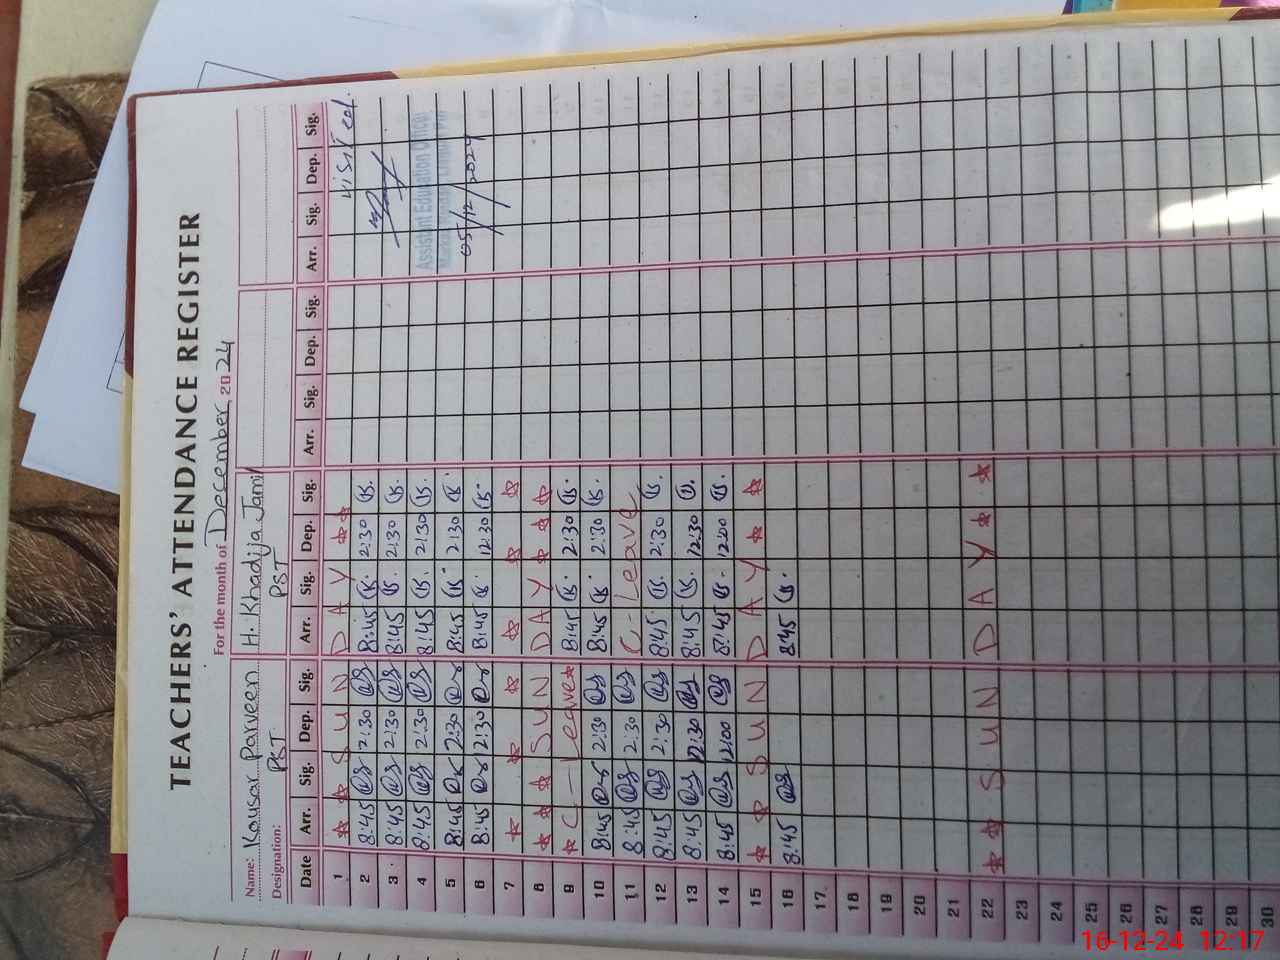 TEACHERS' ATTENDANCE REGISTER
For the month of December, 20 24
Name: Kousar Parveen H. Khadija Jamil
Designation: PST PST
Date Arr. Sig. Dep. Sig. Arr. Sig. Dep. Sig. Arr. Sig. Dep. Sig. Arr. Sig. Dep. Sig.
1 SUN DAY Visited.
2 8:45 2:30 8:45 2:30
3 8:45 2:30 8:45 2:30
4 8:45 2:30 8:45 2:30 Assistant Education Officer
5 8:45 2:30 8:45 2:30 Markaz
6 8:45 2:30 8:45 12:30 05/12/2024
7
8 SUN DAY
9 C-Leave 8:45 2:30
10 8:45 2:30 8:45 2:30
11 8:45 2:30 C-Leave
12 8:45 2:30 8:45 2:30
13 8:45 12:30 8:45 12:30
14 8:45 12:00 8:45 12:00
15 SUN DAY
16 8:45 8:45
17
18
19
20
21
22 SUN DAY
23
24
25
26
27
28
29
30
16-12-24 12:17